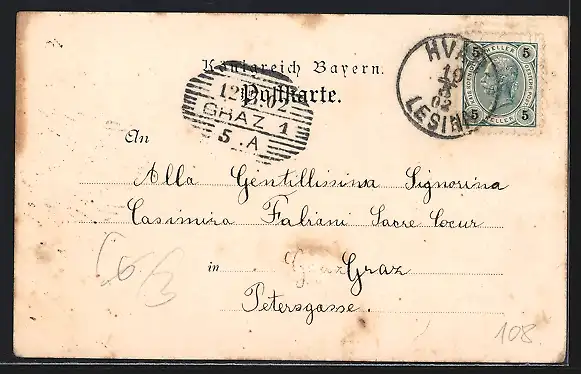 Königreich Bayern.
Postkarte.
HVAR
10
02
(LESINA)
5 HELLER 5
5 HELLER 5
GRAZ 1
5 A
An
Alla Gentillissima Signorina
Casimira Fabiani Sacre Coeur
in Graz
Petersgasse.
108